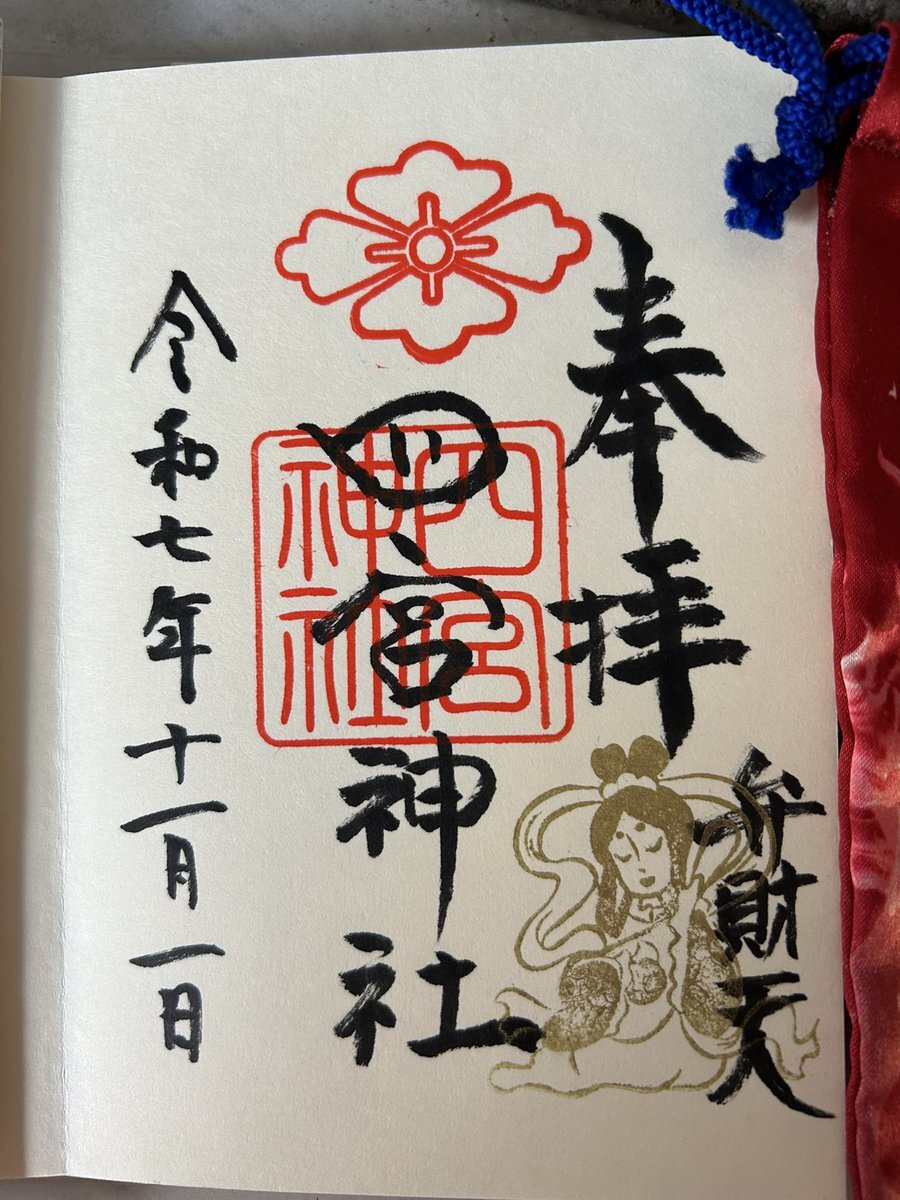 奉拝
弁財天
四宮神社
四宮神社
令和七年十一月一日